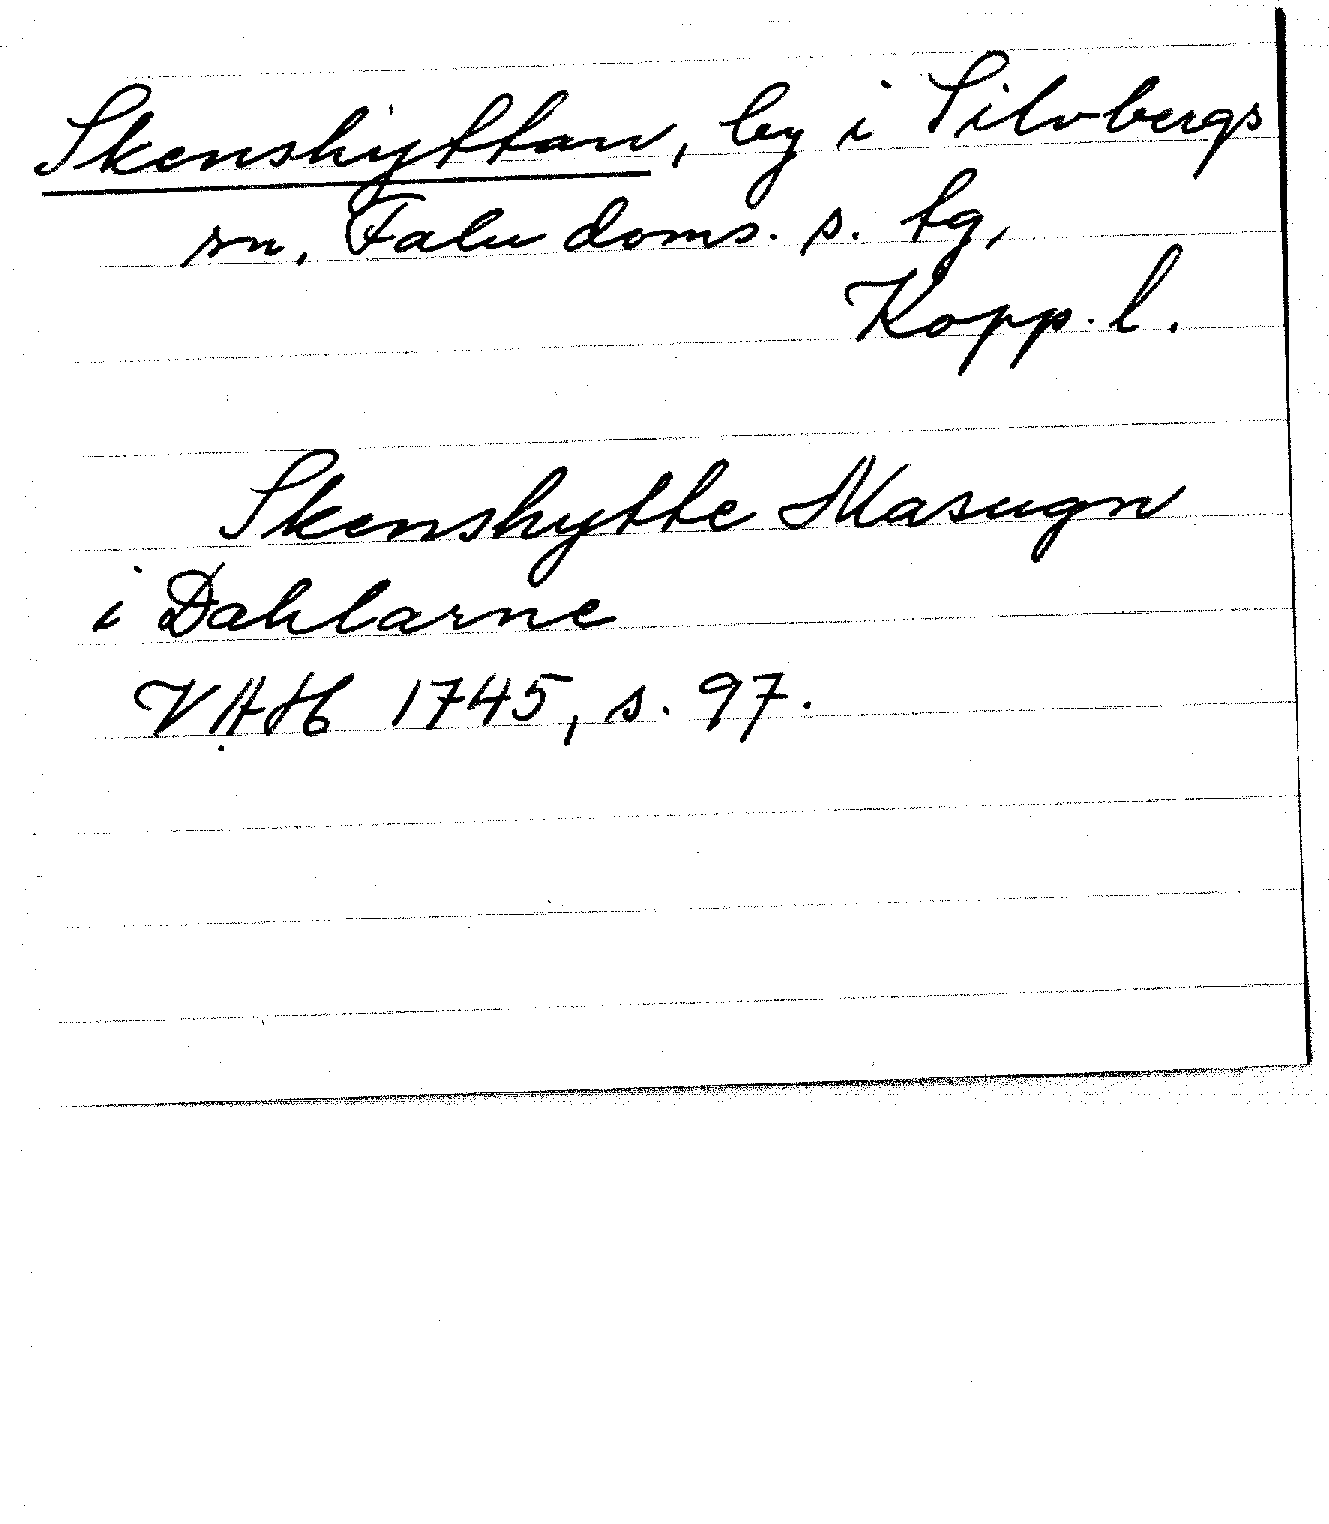 Skenshyttan, by i Silvbergs
sn, Falu doms. s. tg,
Kopp. l.
Skenshytte Masugn
i Dahlarne
VAH 1745, s. 97.